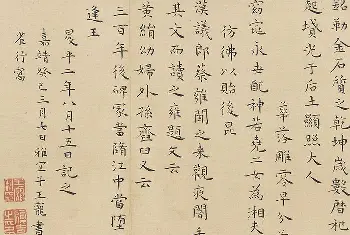 銘勒金石質之乾坤歲數曆祀
起墳光于后土顯照夫人
華落雕零早分
窈窕永世配神若堯二女為湘夫
彷彿以詒後昆
漢議郎蔡雍聞之來觀夜闇手
其文而讀之雍題文云
黃絹幼婦外孫齏臼又云
三百年後碑冢當墮江中當墮
逢王
昇平二年八月十五日記之
嘉靖癸巳三月七日雅宜子王寵書